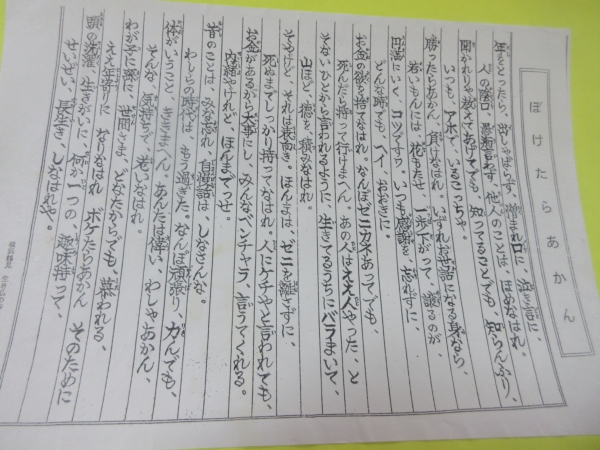 ぼけたらあかん
年をとったら、出しゃばらず、憎まれ口に、泣き言に、
人の蔭口、愚痴言わず、他人のことは、ほめなはれ。
聞かれりゃ教えてあげてでも、知ってることでも、知らんふり、
いつも、アホで、いるこっちゃ。
勝ったらあかん、負けなはれ。いずれお世話になる身なら、
若いもんには、花もたせ、一歩下がって、譲るのが、
円満にいく、コツですわ。いつも感謝を、忘れずに、
どんな時でも、ヘイ、おおきに。
お金の欲を捨てなはれ。なんぼゼニカネあってでも、
死んだら持って行けまへん。あの人はええ人やった、と
そないひとから言われるように、生きてるうちにバラまいて、
山ほど、徳を、積みなはれ。
そやけど、それは表向き。ほんまは、ゼニを離さずに、
死ぬまでしっかり持ってなはれ。人にケチやと言われても、
お金があるから大事にし、みんなベンチャラ、言うてくれる。
内緒やけれど、ほんまでっせ。
昔のことは、みな忘れ、自慢話は、しなさんな。
わしらの時代は、もう過ぎた。なんぼ頑張り、力んでも、
体がいうこと、ききまへん。あんたは偉い、わしゃあかん、
そんな、気持ちで、おいなはれ。
わが子に孫に、世間さま、どなたからでも、慕われる、
ええ年寄りに、なりなはれ。ボケたらあかん そのために
頭の洗濯、生きがいに、何か一つの、趣味持って、
せいぜい、長生き、しなはれや。